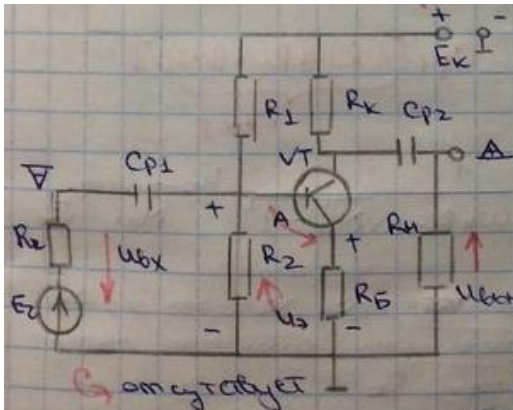 + -
Eк
R1
Rк
Cр2
VT
Cр1
+
A
+
Rн
Rг
Uвх
R2
Rб
Eг
Uэ
Uвых
-
-
Cэ отсутствует